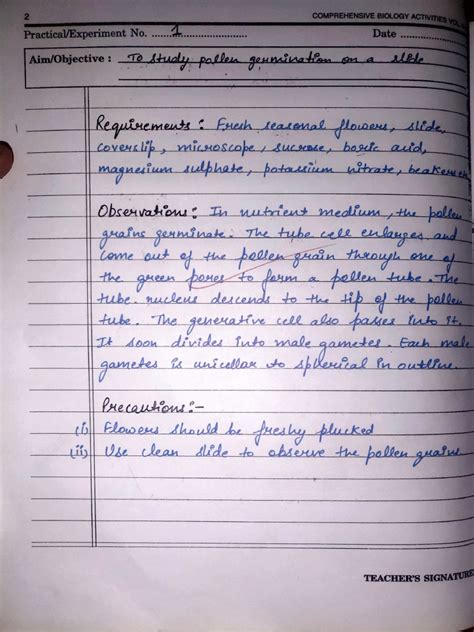 2
COMPREHENSIVE BIOLOGY ACTIVITIES VOL.
Practical/Experiment No. 1 Date
Aim/Objective : To study pollen germination on a slide
Requirements : Fresh seasonal flowers, slide,
coverslip, microscope, sucrose, boric acid,
magnesium sulphate, potassium nitrate, beakers
Observations : In nutrient medium, the pollen
grains germinate. The tube cell enlarges and
come out of the pollen grain through one of
the green pores to form a pollen tube. The
tube nucleus descends to the tip of the pollen
tube. The generative cell also passes into it.
It soon divides into male gametes. Each male
gametes is unicellar to spherical in outline.
Precautions :-
(i) Flowers should be freshy plucked
(ii) Use clean slide to observe the pollen grains
TEACHER'S SIGNATURE